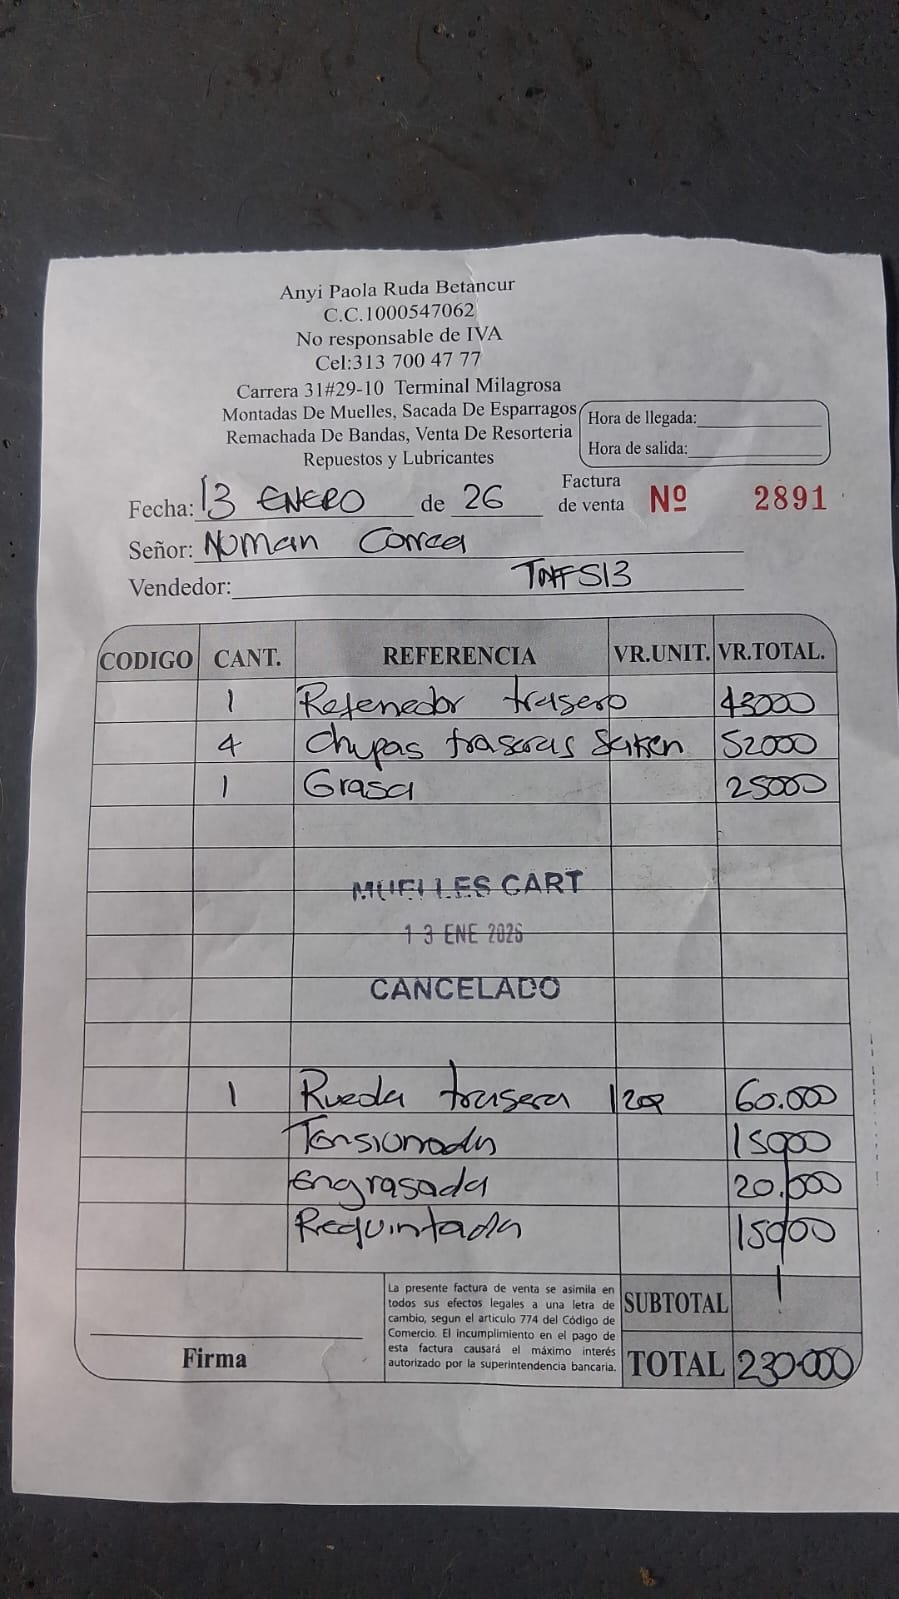 Anyi Paola Ruda Betancur
C.C.1000547062
No responsable de IVA
Cel:313 700 47 77
Carrera 31#29-10 Terminal Milagrosa
Montadas De Muelles, Sacada De Esparragos
Remachada De Bandas, Venta De Resorteria
Repuestos y Lubricantes
Hora de llegada:
Hora de salida:
Fecha: 13 ENERO de 26 Factura de venta Nº 2891
Señor: Noman Correa
Vendedor:
CODIGO CANT. REFERENCIA VR.UNIT. VR.TOTAL.
1 Retenedor trasero 43000
4 Chupas traseras Seiken 52000
1 Grasa 25000
MUELLES CART
13 ENE 2026
CANCELADO
1 Rueda trasera 60.000
Tensionada 15000
Engrasada 20.000
Requintada 15000
La presente factura de venta se asimila en
todos sus efectos legales a una letra de
cambio, segun el articulo 774 del Código de
Comercio. El incumplimiento en el pago de
esta factura causará el máximo interés
autorizado por la superintendencia bancaria.
SUBTOTAL
Firma
TOTAL 230.000